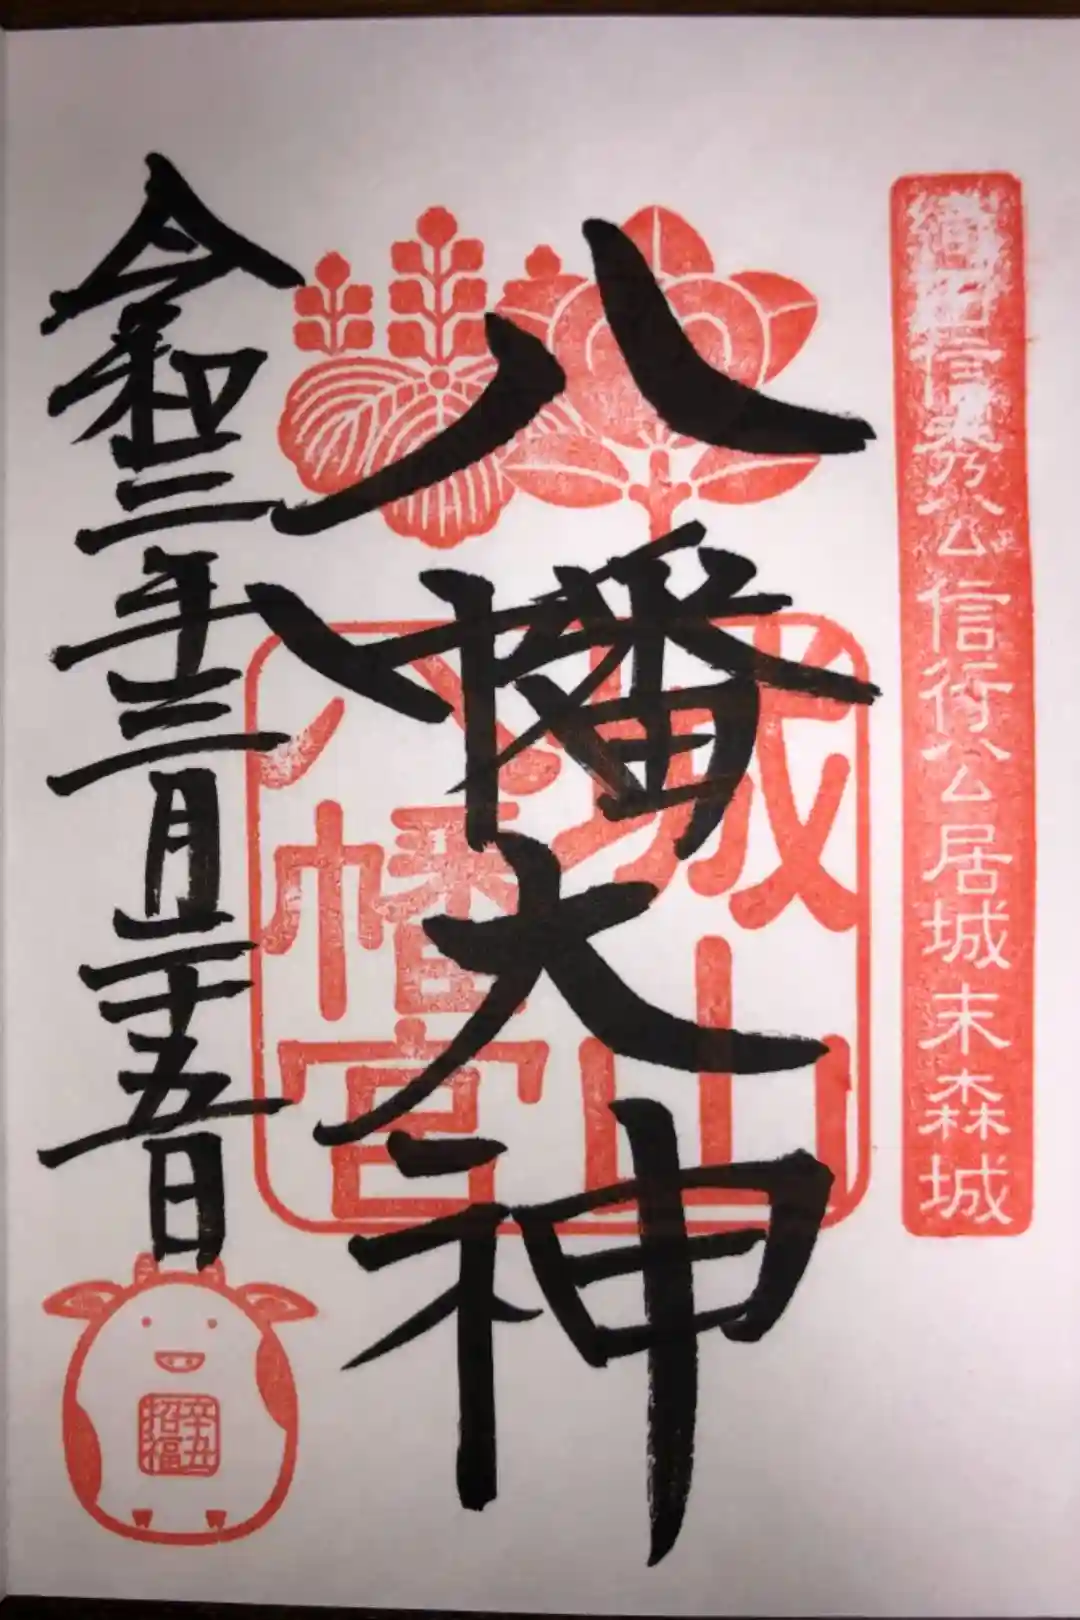 織田信秀乃公信行公居城末森城
八幡大神
城山
八幡宮
令和三年三月二十五日
辛丑
招福